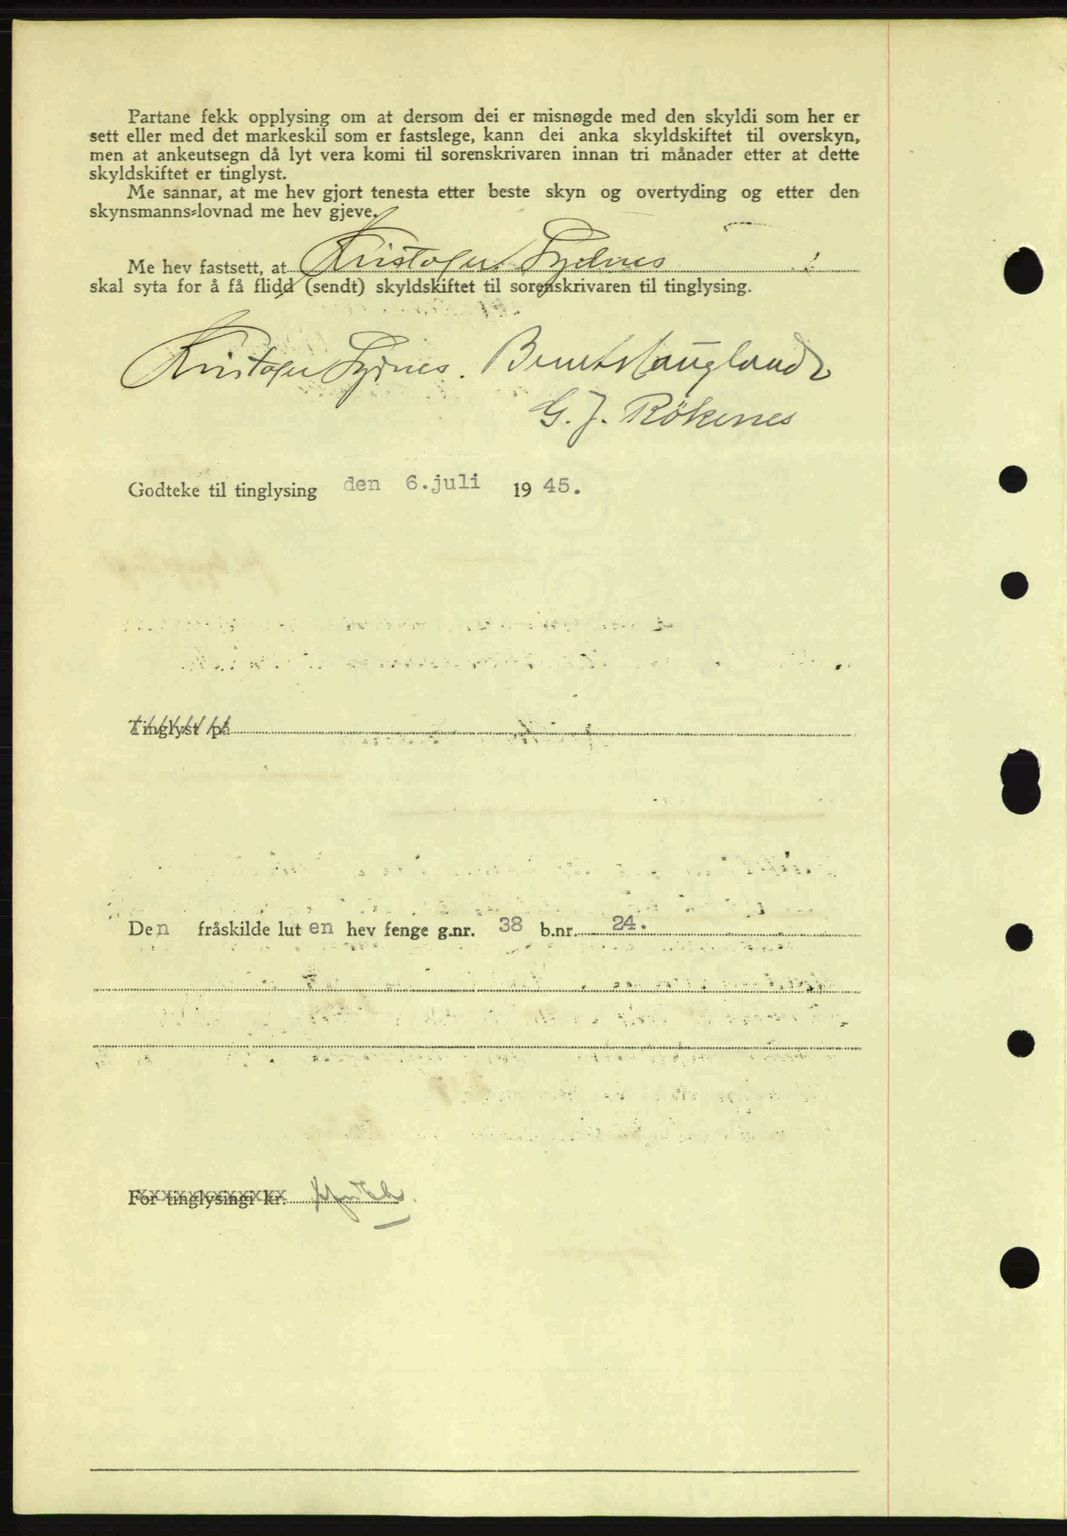 Partane fekk opplysing om at dersom dei er misnøgde med den skyldi som her er
sett eller med det markeskil som er fastslege, kann dei anka skyldskiftet til overskyn,
men at ankeutsegn då lyt vera komi til sorenskrivaren innan tri månader etter at dette
skyldskiftet er tinglyst.
Me sannar, at me hev gjort tenesta etter beste skyn og overtyding og etter den
skynsmanns-lovnad me hev gjeve.
Me hev fastsett, at Kristofer Sydnes
skal syta for å få flidd (sendt) skyldskiftet til sorenskrivaren til tinglysing.
Kristofer Sydnes. Bernt Haugland
G. J. Rökenes
Godteke til tinglysing den 6.juli 1945.
Tinglyst på
Den fråskilde luten hev fenge g.nr. 38 b.nr. 24.
For tinglysingi kr.